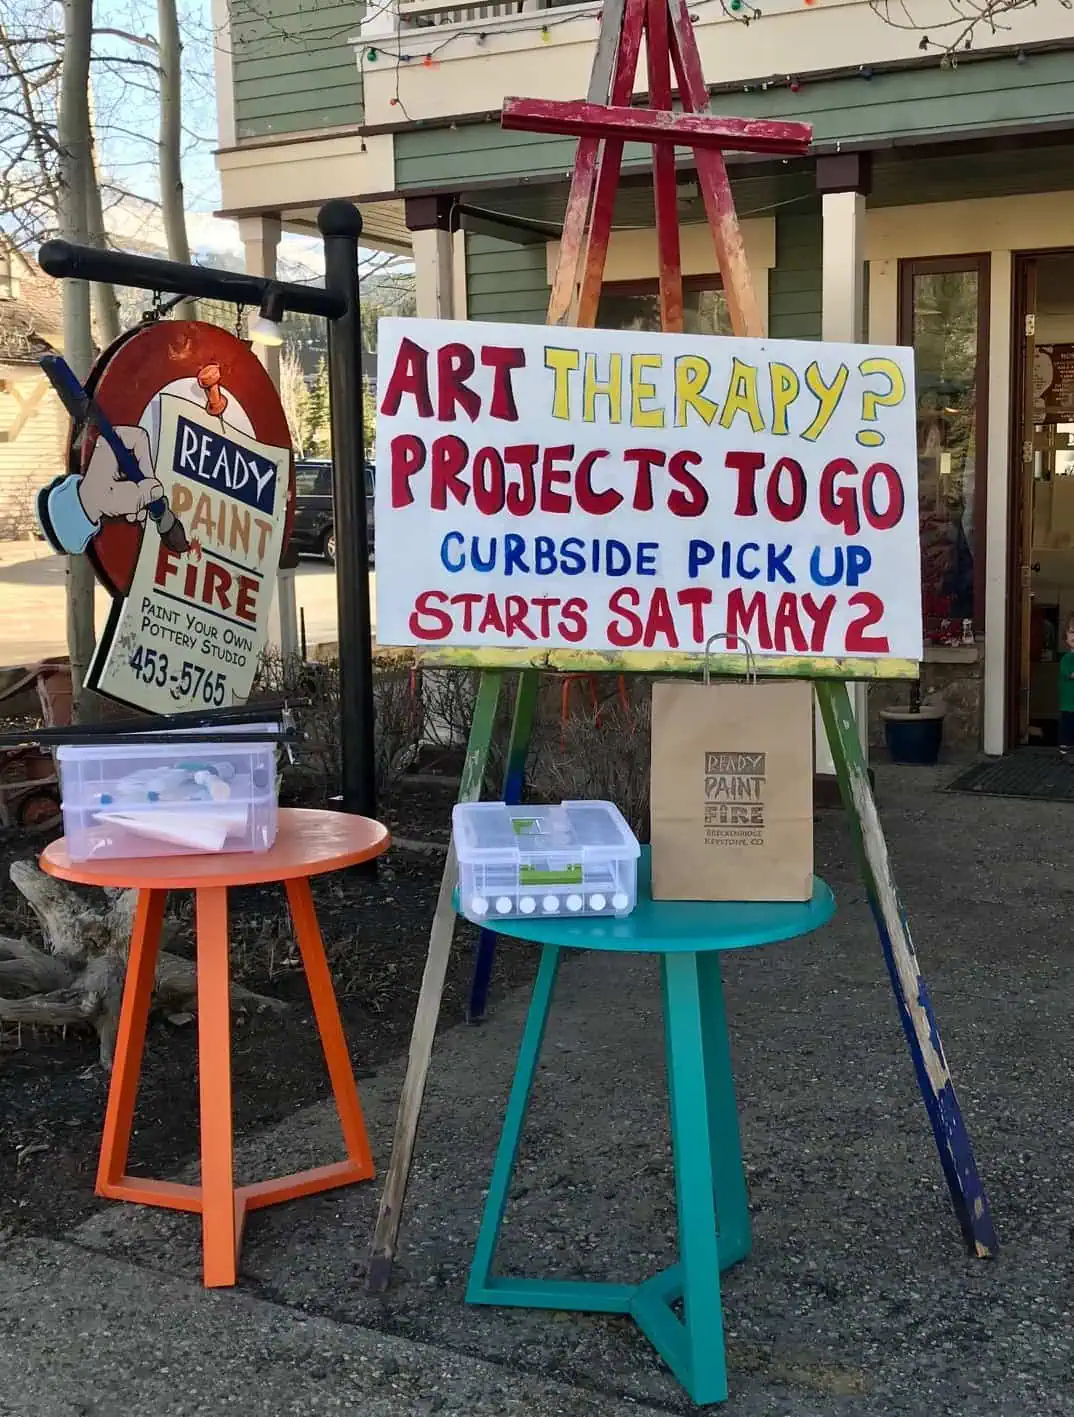 ART THERAPY?
PROJECTS TO GO
CURBSIDE PICK UP
STARTS SAT MAY 2
READY
PAINT
FIRE
PAINT YOUR OWN
POTTERY STUDIO
453-5765
READY
PAINT
FIRE
BRECKENRIDGE
KEYSTONE, CO